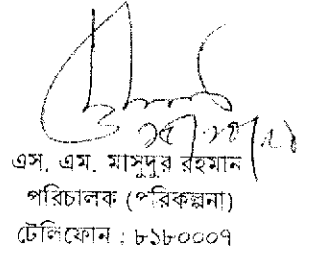 এস. এম. মাসুদুর রহমান
পরিচালক (পরিকল্পনা)
টেলিফোন : ৮১৮০০০৭